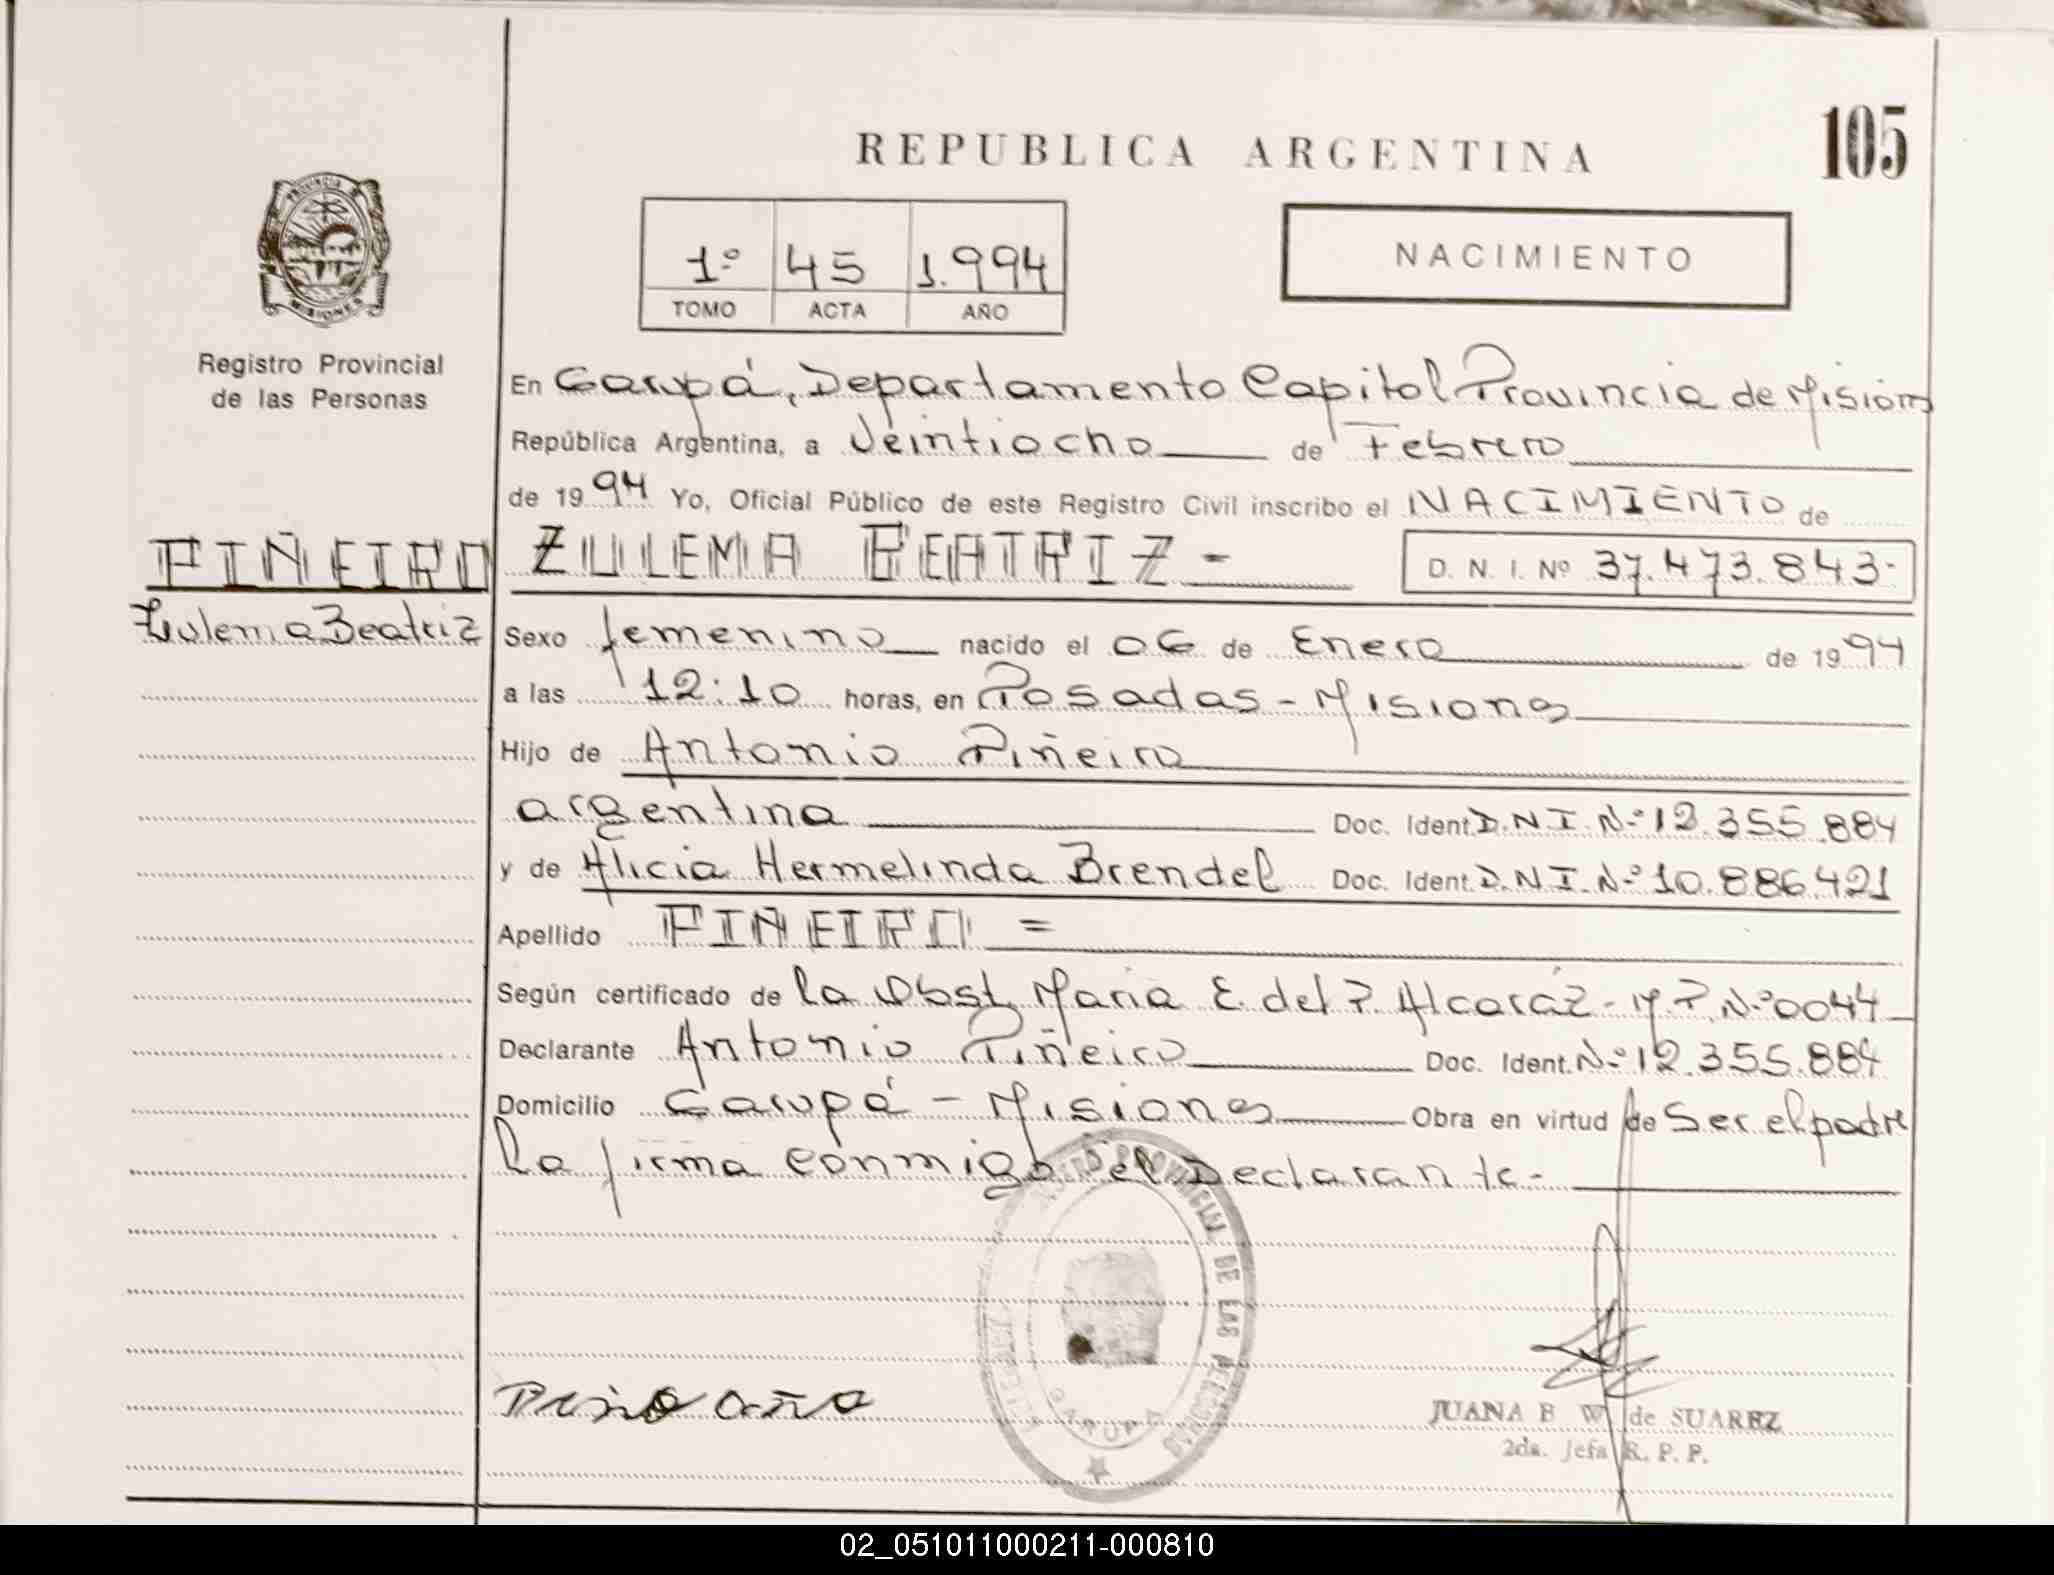 105
REPUBLICA ARGENTINA
PROVINCIA DE
MISIONES
1º 45 1.994
TOMO ACTA AÑO
NACIMIENTO
Registro Provincial
de las Personas
En Garupá, Departamento Capital Provincia de Misiones
República Argentina, a Veintiocho de Febrero
de 1994 Yo, Oficial Público de este Registro Civil inscribo el NACIMIENTO de
PIÑEIRO ZULEMA BEATRIZ - D. N. I. Nº 37.473.843-
Zulema Beatriz Sexo femenino nacido el 06 de Enero de 1994
a las 12:10 horas, en Posadas - Misiones
Hijo de Antonio Piñeiro
argentina Doc. Ident. D.N.I.Nº 12.355.884
y de Alicia Hermelinda Brendel Doc. Ident. D.N.I.Nº 10.886.421
Apellido PIÑEIRO =
Según certificado de la Obst. Maria E. del P. Alcaráz - M.P.Nº 0044
Declarante Antonio Piñeiro Doc. Ident. Nº 12.355.884
Domicilio Garupá - Misiones Obra en virtud de Ser el padre
La firma conmigo el Declarante.-
REGISTRO PROVINCIAL DE LAS PERSONAS
GARUPA
JUANA B W de SUAREZ
2da. Jefa R. P. P.
02_051011000211-000810